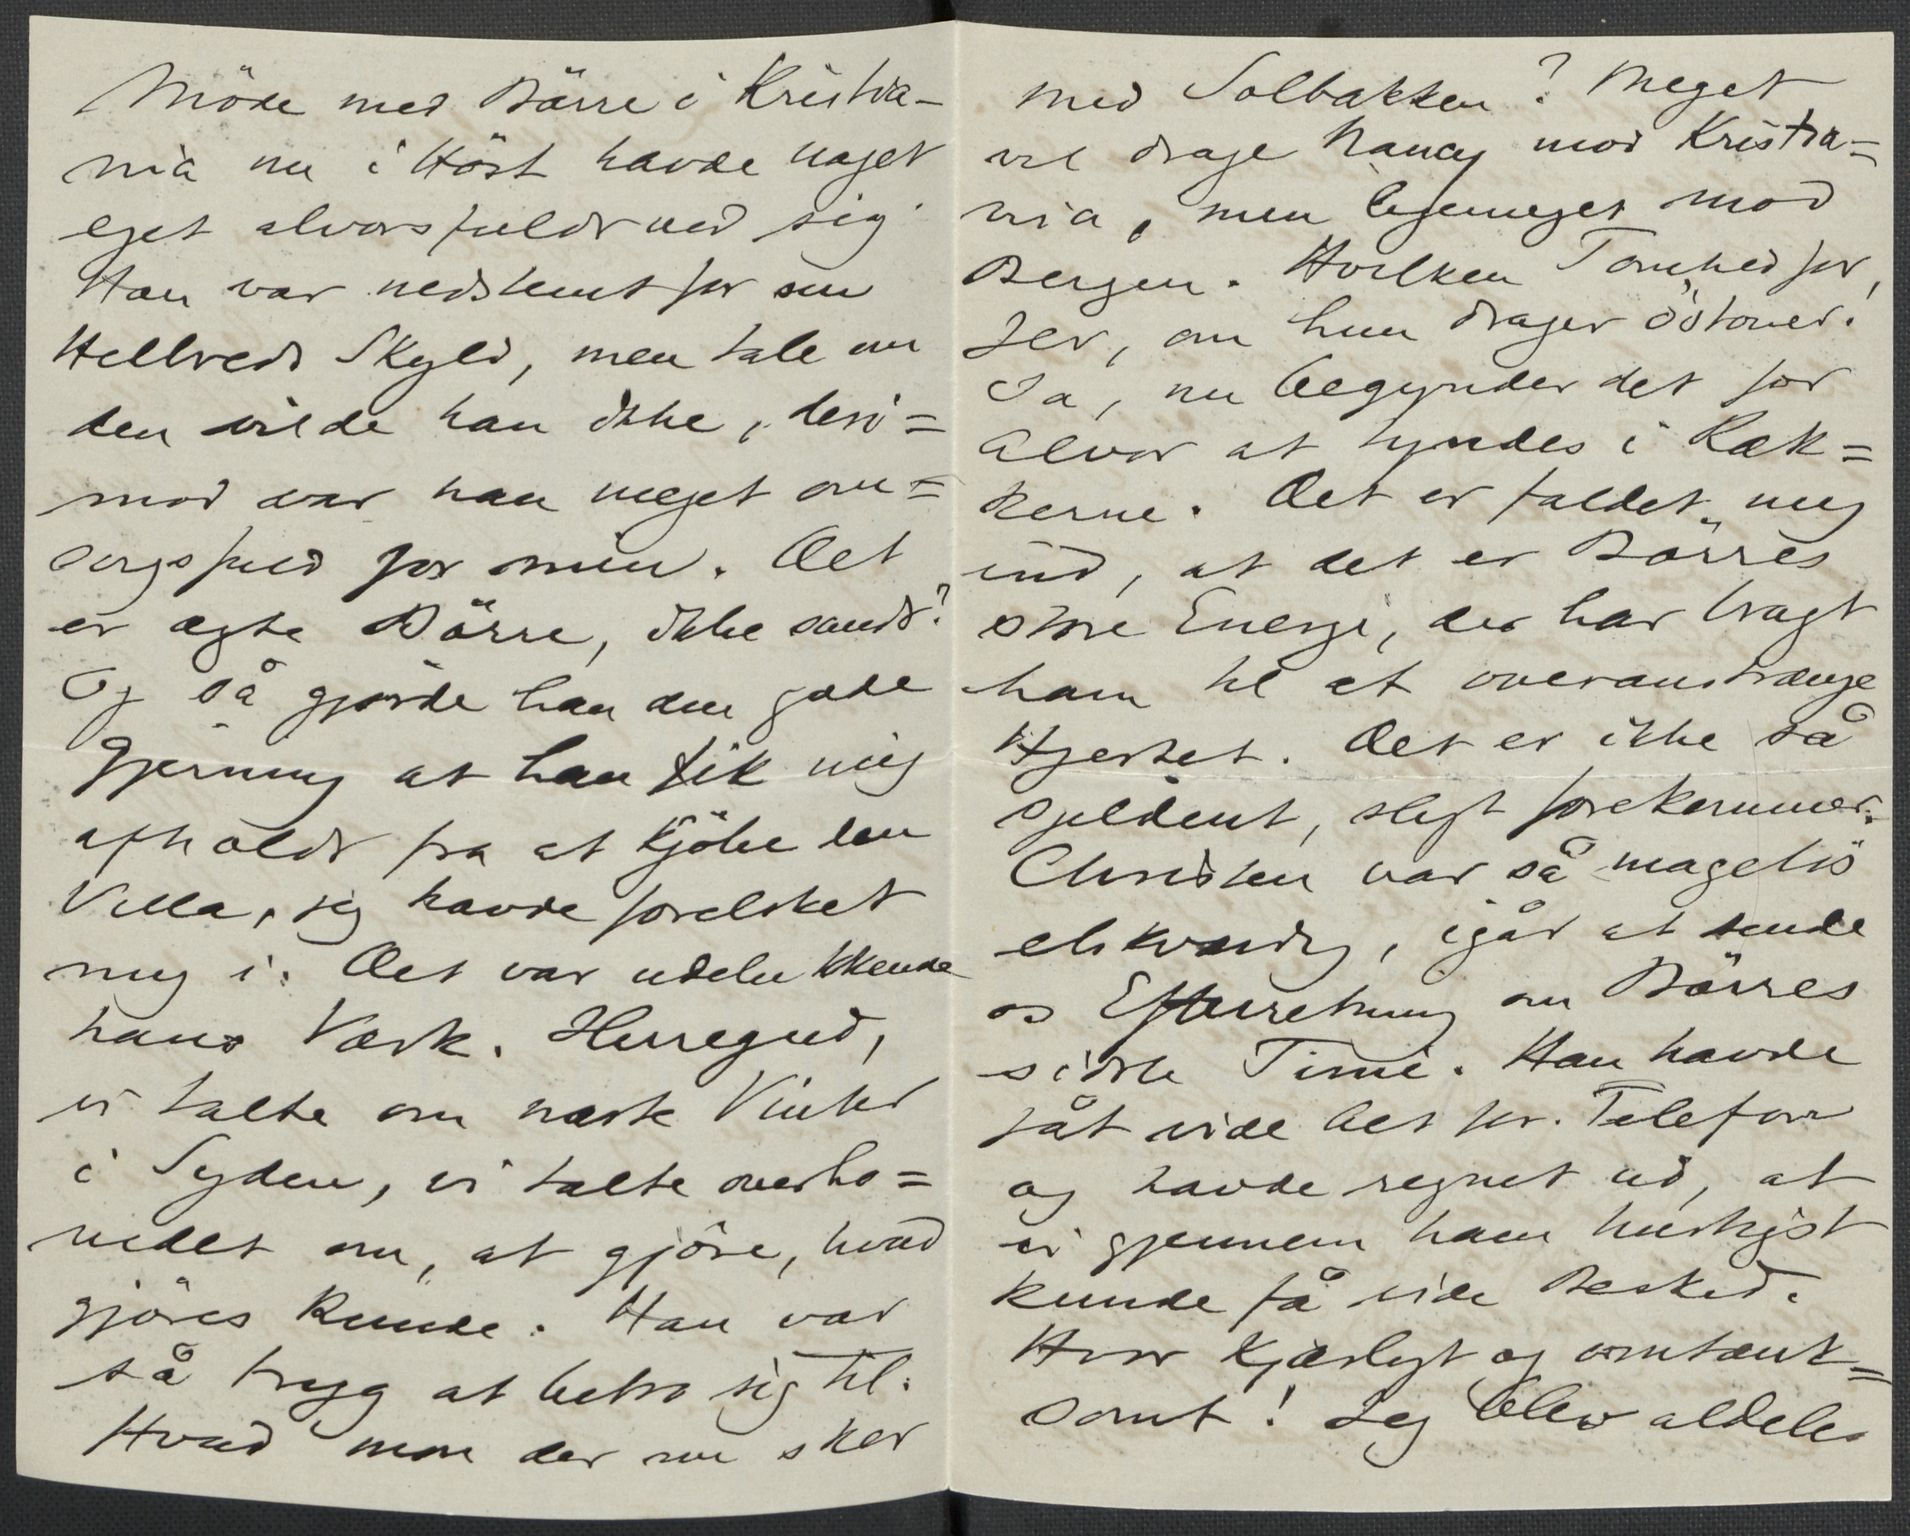 Möde med Börre i Kristia-
nia nu i Höst havde noget
eget alvorsfuldt ved sig.
Han var nedstemt for sin
Helbreds Skyld, men tale om
den vilde han ikke, deri=
mod var han meget om=
sorgsfuld for min. Det
er ægte Börre, ikke sandt?
Og så gjorde han den gode
Gjerning at han fik mig
afholdt fra at kjöbe den
Villa, jeg havde forelsket
mig i. Det var udelukkende
hans Værk. Herregud,
vi talte om næste Vinter
i Syden, vi talte overho=
vedet om, at gjöre, hvad
gjöres kunde. Han var
så tryg at betro sig til.
Hvad mon der nu sker
med Solbakken? Meget
vil drage Nancy mod Kristia=
nia, men ligemeget mod
Bergen. Hvilken Tomhed for
Jer, om hun drager östover.
Ja, nu begynder det for
Alvor at tyndes i Ræk=
kerne. Det er faldet mig
ind, at det er Börres
store Energi, der har bragt
ham til at overanstrænge
Hjertet. Det er ikke så
sjeldent, sligt forekommer.
Christen var så magelös
elskværdig, igår at sende
os Efterretning om Börres
sidste Time. Han havde
fåt vide det pr. Telefon
og havde regnet ud, at
vi gjennem ham hurtigst
kunde få vide Besked.
Hvor kjærligt og omtænk=
somt! Jeg blev aldeles